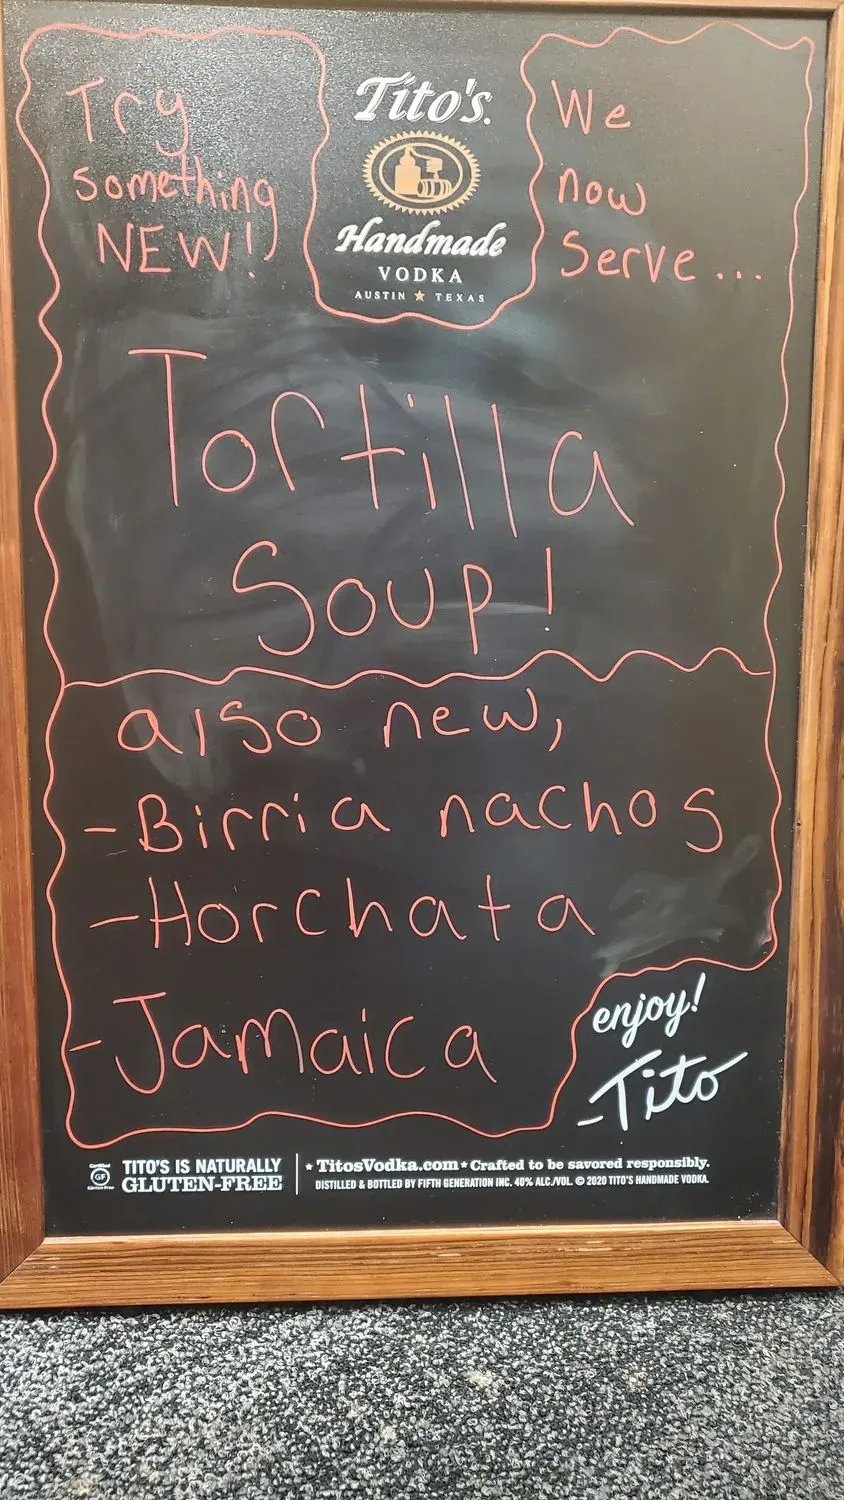 Try
something
NEW!
Tito's.
Handmade
VODKA
AUSTIN ★ TEXAS
We
now
Serve...
Tortilla
Soup!
also new,
- Birria nachos
- Horchata
- Jamaica
enjoy!
-Tito
Certified
GF
Gluten-Free
TITO'S IS NATURALLY
GLUTEN-FREE
★ TitosVodka.com ★ Crafted to be savored responsibly.
DISTILLED & BOTTLED BY FIFTH GENERATION INC. 40% ALC./VOL. © 2020 TITO'S HANDMADE VODKA.